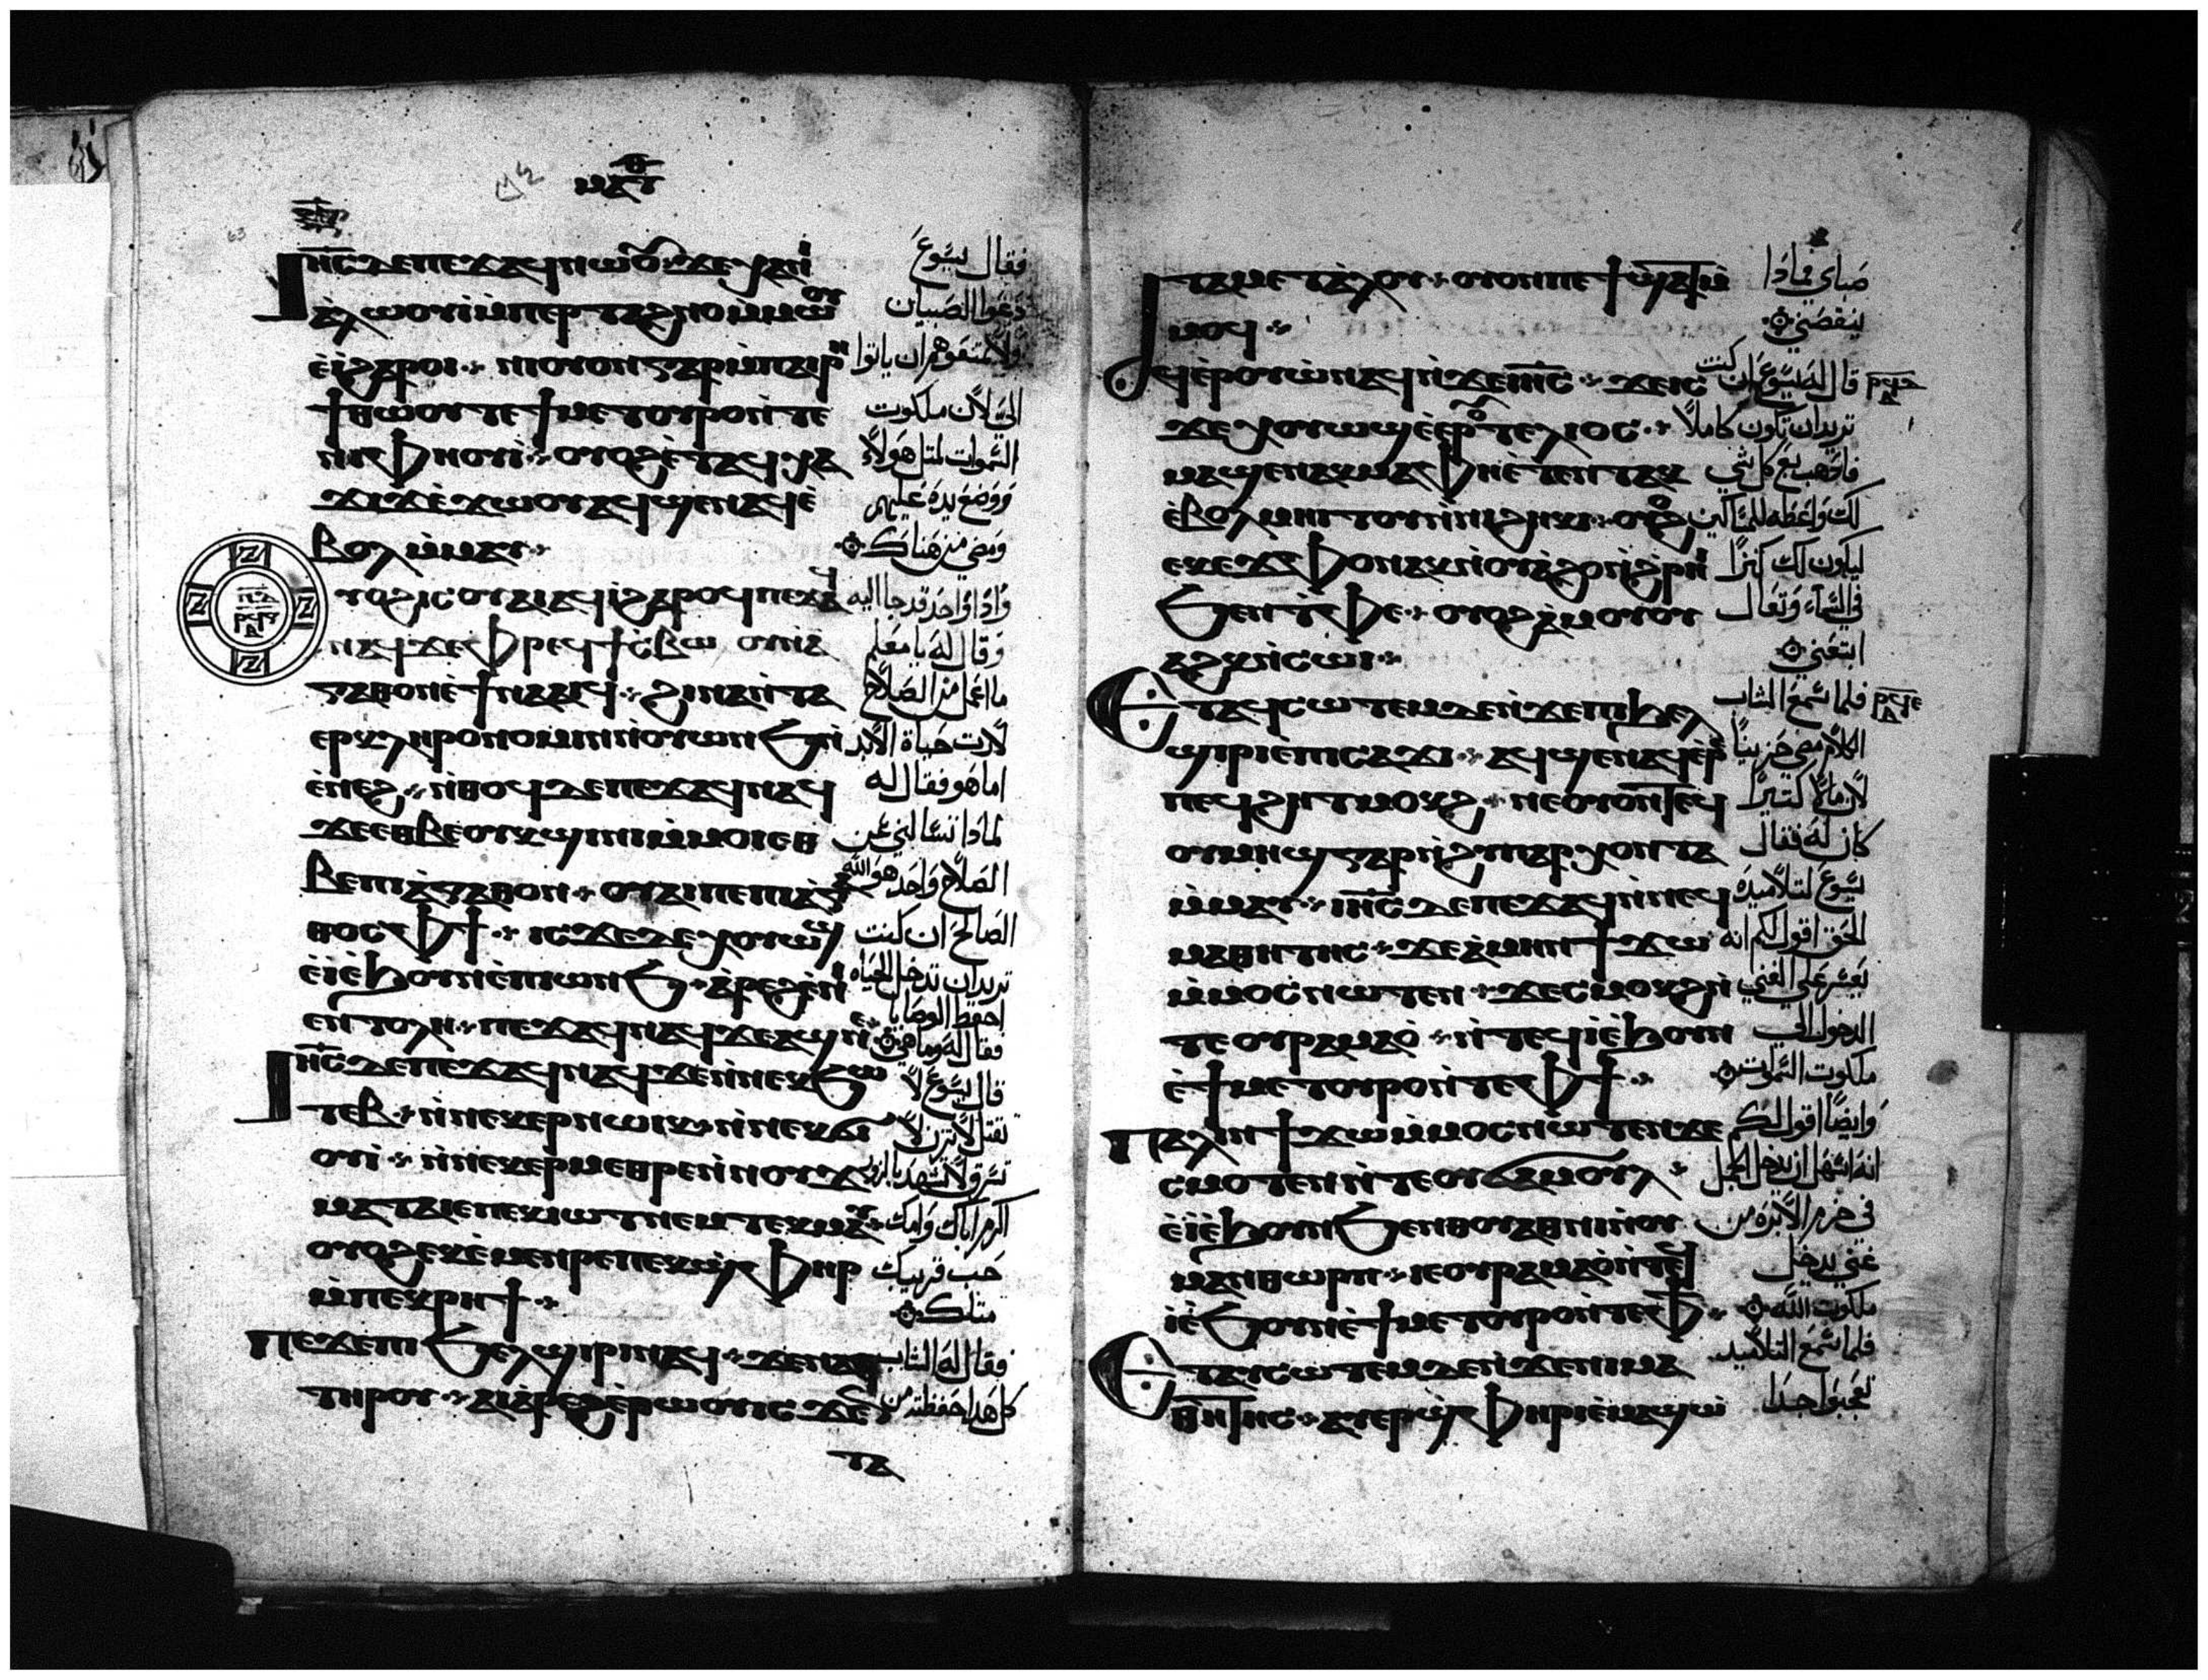 ⲓⲏ̅ⲥ̅ ⲇⲉ ⲡⲉϫⲁϥ ⲛⲱⲟⲩ ϫⲉ ⲭⲁ ⲛⲓ
ⲁⲗⲱⲟⲩⲓ ⲙ̀ⲡⲉⲣⲧⲁϩⲛⲟ ⲙ̀ⲙⲱⲟⲩ
ⲉ̀ⲓ̀ ϩⲁⲣⲟⲓ ⲛⲓⲟⲩⲟⲛ ⲅⲁⲣ ⲙ̀ⲡⲁⲓⲣⲏ
ϯ ⲑⲱⲟⲩ ⲧⲉ ϯⲙⲉⲧⲟⲩⲣⲟ ⲛ̀ⲧⲉ
ⲛⲓⲫⲏⲟⲩⲓ̀ ⲟⲩⲟϩ ⲉ̀ⲧⲁϥⲭⲁ
ϫⲓϫ ⲉ̀ϫⲱⲟⲩ ⲁϥϣⲉⲛⲁϥ ⲉ̀
ⲃⲟⲗ ⲙ̀ⲙⲁⲩ
ⲩⲟϩ ⲓⲥ ⲟⲩⲁⲓ ⲁϥⲓ̀ ϩⲁⲣⲟϥ ⲡⲉϫⲁϥ
ⲛⲁϥ ϫⲉ ⲫⲣⲉϥϯⲥ̀ⲃⲱ ⲟⲩ ⲛ̀ⲁ
ⲅⲁⲑⲟⲛ ⲉ̀ϯⲛⲁⲁⲓϥ ϩⲓⲛⲁ ⲛ̀ⲧⲁ
ⲉⲣⲕⲗⲏⲣⲟⲛⲟⲙⲓⲛ ⲛ̀ⲟⲩⲱⲛϧ ⲛ̀
ⲉ̀ⲛⲉϩ ⲛ̀ⲑⲟϥ ⲇⲉ ⲡⲉϫⲁϥ ⲛⲁϥ
ϫⲉ ⲉⲑⲃⲉⲟⲩ ⲕϣⲓⲛⲓ ⲙ̀ⲙⲟⲓ ⲉⲑ
ⲃⲉ ⲡⲓⲁ̀ⲅⲁⲑⲟⲛ ⲟⲩⲁⲓ ⲡⲉ ⲡⲓⲁ̀ⲅⲁ
ⲑⲟⲥ ⲫϯ ⲓⲥϫⲉ ⲇⲉ ⲭⲟⲩⲱϣ
ⲉ̀ⲓ̀ ⲉ̀ϧⲟⲩⲛ ⲉ̀ⲡⲓⲱⲛϧ ⲁ̀ⲣⲉϩ ⲉ̀ⲛⲓ
ⲉⲛⲧⲟⲗⲏ ⲡⲉϫⲁϥ ⲛⲁϥ ϫⲉ ⲁϣ ⲛⲉ
ⲓⲏ̅ⲥ̅ ⲇⲉ ⲡⲉϫⲁϥ ⲛⲁϥ ϫⲉ ⲛ̀ⲛⲉⲕϧⲱ
ⲧⲉⲃ ⲛ̀ⲛⲉⲕⲉⲣⲛⲱⲓⲕ ⲛ̀ⲛⲉⲕϭⲓ
ⲟⲩⲓ̀ ⲛ̀ⲛⲉⲕⲉⲣⲙⲉⲑⲣⲉ ⲛ̀ⲛⲟⲩϫ
ⲙⲁⲧⲁⲓⲉ ⲡⲉⲕⲓⲱⲧ ⲛⲉⲙ ⲧⲉⲕⲙⲁⲩ
ⲟⲩⲟϩ ⲉⲕⲉ̀ⲙⲉⲛⲣⲉ ⲡⲉⲕϣ̀ⲫⲏⲣ
ⲙ̀ⲡⲉⲕⲣⲏϯ
ⲡⲉϫⲉ ⲡⲓϧⲉⲗϣⲓⲣⲓ ⲛⲁϥ ϫⲉ ⲛⲁⲓ
ⲧⲏⲣⲟⲩ ⲁⲓⲁ̀ⲣⲉϩ ⲉ̀ⲣⲱⲟⲩ ⲓⲥϫⲉⲛ
ⲧⲁ
فقال يسوع
دعوا الصبيان
ولا تمنعوهم ان ياتوا
الي لان ملكوت
السموات لمثل هولاء
ووضع يده عليهم
ومضي من هناك
واذا واحد قد جا اليه
وقال له يا معلم
ما اعمل من الصلاح
لارث حياة الابد
اما هو فقال له
لماذا تسالني عن
الصلاح واحد هو الله
الصالح ان كنت
تريد ان تدخل الحياه
احفظ الوصايا
فقال له وما هي
قال يسوع لا
تقتل لا تزن لا
تسرق لا تشهد بالزور
اكرم اباك وامك
حب قريبك
مثلك
فقال له الشاب
كل هذا حفظته من
ⲧⲁⲙⲉⲧⲁⲗⲟⲩ ⲟⲩⲟⲛ ⲡⲉϯϣⲁⲧ ⲙ̀
ⲙⲟϥ
ϥⲉⲣⲟⲩⲱ̀ ⲛⲁϥ ⲛ̀ϫⲉ ⲓⲏ̅ⲥ̅ ϫⲉ ⲓⲥ
ϫⲉ ⲭⲟⲩⲱϣ ⲉ̀ⲉⲣ ⲧⲉⲗⲓⲟⲥ
ⲙⲁϣⲉⲛⲁⲕ ⲙⲁ ⲫⲏ ⲉ̀ⲧⲉⲛⲧⲁⲕ
ⲉ̀ⲃⲟⲗ ⲙⲏⲓⲧⲟⲩ ⲛ̀ⲛⲓϩⲏⲕⲓ ⲟⲩⲟϩ
ⲉⲕⲉϫⲫⲟ ⲛⲁⲕ ⲛ̀ⲟⲩⲁϩⲟ ⲛ̀ϩ̀ⲣⲏⲓ
ϧⲉⲛ ⲧ̀ⲫⲉ ⲟⲩⲟϩ ⲁ̀ⲙⲟⲩ ⲟⲩ
ⲁϩⲕ ⲛ̀ⲥⲱⲓ
ⲉⲧⲁϥⲥⲱⲧⲉⲙ ⲇⲉ ⲛ̀ϫⲉ ⲡⲓϧⲉⲗ
ϣⲓⲣⲓ ⲉ̀ⲡⲓⲥⲁϫⲓ ⲁϥϣⲉⲛⲁϥ ⲉ̀ⲣⲉ
ⲡⲉϥϩⲏⲧ ⲙⲟⲕϩ ⲛⲉ ⲟⲩⲟⲛⲧⲉϥ
ⲟⲩⲙⲏϣ ⲅⲁⲣ ⲛ̀ϩⲩⲡⲁⲣⲭⲟⲛⲧⲁ
ⲙ̀ⲙⲁⲩ ⲓⲏ̅ⲥ̅ ⲇⲉ ⲡⲉϫⲁϥ ⲛ̀ⲛⲉϥ
ⲙⲁⲑⲏⲧⲏⲥ ϫⲉ ⲁ̀ⲙⲏⲛ ϯϫⲱ
ⲙ̀ⲙⲟⲥ ⲛⲱⲧⲉⲛ ϫⲉ ⲥ̀ⲙⲟⲕϩ ⲛ̀
ⲧⲉ ⲟⲩⲣⲁⲙⲁⲟ̀ ⲛ̀ⲧⲉϥⲓ̀ ⲉ̀ϧⲟⲩⲛ
ⲉ̀ϯⲙⲉⲧⲟⲩⲣⲟ ⲛ̀ⲧⲉ ⲫϯ
ⲡⲁⲗⲓⲛ ϯϫⲱ ⲙ̀ⲙⲟⲥ ⲛⲱⲧⲉⲛ ϫⲉ
ⲥⲙⲟⲧⲉⲛ ⲛ̀ⲧⲉ ⲟⲩϭⲁⲙⲟⲩⲗ
ⲉ̀ⲓ̀ ⲉ̀ϧⲟⲩⲛ ϧⲉⲛ ⲑⲟⲩⲁⲑⲛⲓ ⲛ̀ⲟⲩ
ⲙⲁⲛⲑⲱⲣⲡ ⲓⲉ ⲟⲩⲣⲁⲙⲁⲟ̀ ⲛ̀ⲧⲉϥ
ⲓ̀ ⲉ̀ϧⲟⲩⲛ ⲉ̀ϯⲙⲉⲧⲟⲩⲣⲟ ⲛ̀ⲧⲉ ⲫϯ
ⲉⲧⲁⲩⲥⲱⲧⲉⲙ ⲇⲉ ⲛ̀ϫⲉ ⲛⲓⲙⲁ
ⲑⲏⲧⲏⲥ ⲁⲩⲉⲣϣ̀ⲫⲏⲣⲓ ⲉ̀ⲙⲁϣⲱ
صباي فماذا
ينقصني
قال له يسوع ان كنت
تريد ان تكون كاملا
فاذهب بع كل شي
لك واعطه للمساكين
ليكون لك كنزا
في السماء وتعال
اتبعني
فلما سمع الشاب
الكلام مضي حزينا
لان مالا كثيرا
كان له فقال
يسوع لتلاميذه
الحق اقول لكم انه
يعسر علي الغني
الدخول الي
ملكوت السموات
وايضا اقول لكم
انه اسهل ان يدخل الجمل
في خرم الابره من
غني يدخل
ملكوت الله
فلما سمع التلاميذ
تعجبوا جدا